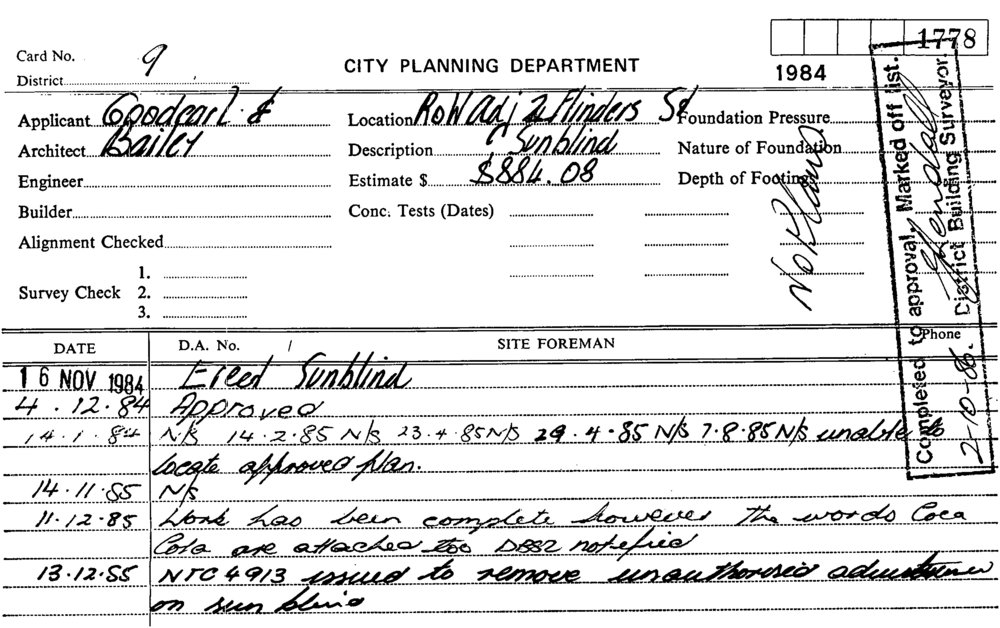 1778
Card No. 9
District
CITY PLANNING DEPARTMENT
1984
Applicant Goodearl &
Architect Bailey
Engineer
Builder
Alignment Checked
Survey Check
1.
2.
3.
Location RoW Adj 2 Flinders St
Description Sunblind
Estimate $ $884.08
Conc. Tests (Dates)
Foundation Pressure
Nature of Foundation
Depth of Footing
No Plans
Completed to approval, Marked off list.
2-10-86. District Building Surveyor.
Phone
DATE D.A. No. / SITE FOREMAN
16 NOV 1984 Erect Sunblind
4.12.84 Approved
14.1.84 N/S 14.2.85 N/S 23.4.85 N/S 29.4.85 N/S 7.8.85 N/S unable to
locate approved plan.
14.11.85 N/S
11.12.85 Work has been complete however the words Coca
Cola are attached too DBS2 notefied
13.12.85 NTC 4913 issued to remove unauthorised
on sun blind